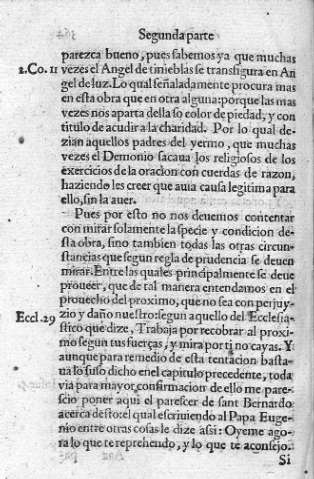 Segunda parte
parezca bueno, pues sabemos ya que muchas
2.Co. 11 vezes el Angel de tinieblas se transfigura en An
gel de luz. Lo qual señaladamente procura mas
en esta obra que en otra alguna: porque las mas
vezes nos aparta della so color de piedad, y con
titulo de acudir a la charidad. Por lo qual de-
zian aquellos padres del yermo, que muchas
vezes el Demonio sacaua los religiosos de los
exercicios de la oracion con cuerdas de razon,
haziendo les creer que auia causa legitima para
ello, sin la auer.
Pues por esto no nos deuemos contentar
con mirar solamente la specie y condicion de-
sta obra, sino tambien todas las otras circun-
stancias que segun regla de prudencia se deuen
mirar. Entre las quales principalmente se deue
proueer, que de tal manera entendamos en el
prouecho del proximo, que no sea con perjuy-
Eccl. 29 zio y daño nuestro: segun aquello del Ecclesia-
stico que dize, Trabaja por recobrar al proxi-
mo segun tus fuerças, y mira por ti no cayas. Y
aunque para remedio de esta tentacion basta-
ua lo suso dicho en el capitulo precedente, toda
via para mayor confirmacion de ello me pare-
scio poner aqui el parescer de sant Bernardo
acerca desto: el qual escriuiendo al Papa Euge-
nio entre otras cosas le dize assi: Oyeme ago-
ra lo que te reprehendo, y lo que te aconsejo.
Si